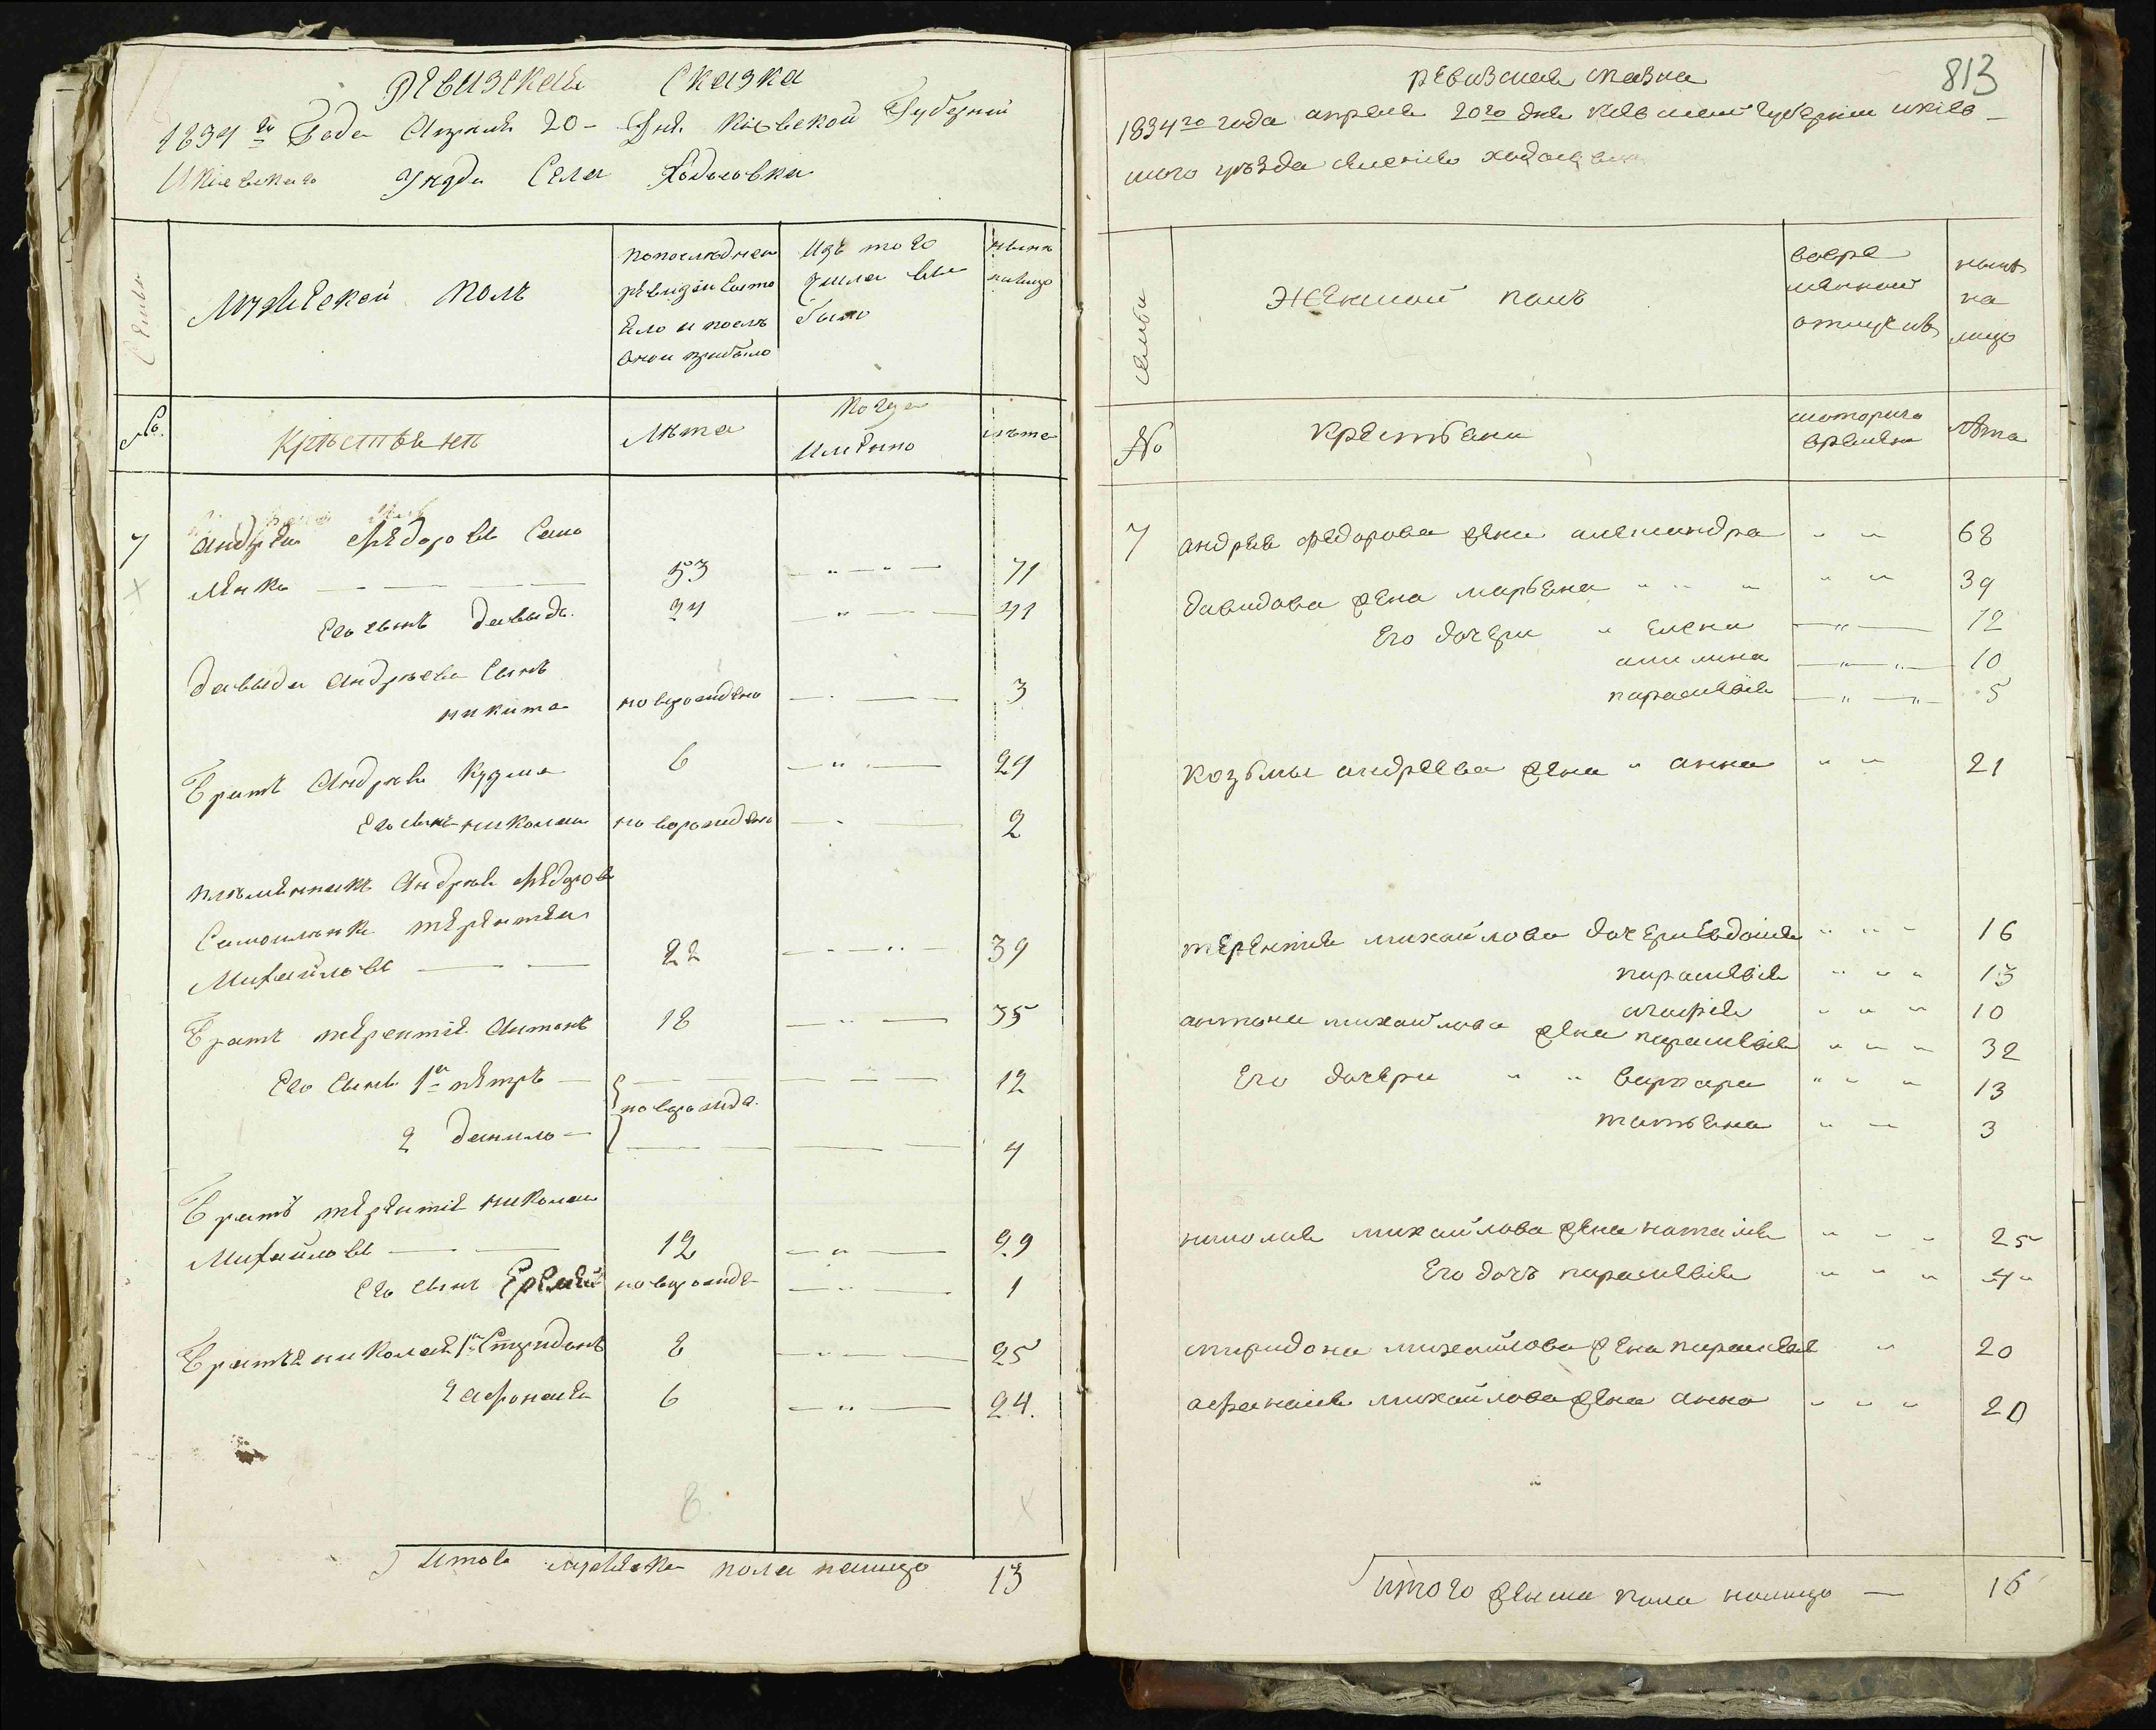 Ревизская Сказка
1834го Года Апреля 20 Дня Киевской Губернии
И Киевского Уезда Села Ходосовки
Семьи
Мужеской полъ
По последней
ревизии состо
яло и после
оной прибыло
Изъ того
числа вы
было
Ныне
налицо
№
Крестьяне
Лета
Когда
Именно
лета
7
Андрей Федоровъ Само
ленко
53
71
Его сынъ Давыдъ
24
41
Давыда Андреева Сынъ
никита
новорожденъ
3
Братъ Андрея Кузма
6
24
Его сынъ николай
новорожденъ
2
племянникъ Андрея Федорова
Самоиленка терентий
Михайловъ
22
39
Братъ терентия Антонъ
18
35
Его Сынъ 1й петръ
новорожд
12
2 данило
4
Братъ терентия николай
Михайловъ
12
29
Его сынъ Еремей
новорожд
1
Братья николая 1й Спиридонъ
8
25
2 афонасий
6
24.
8
Итого мужеска пола налицо
13
813
ревизская сказка
1834го года апреля 20го дня киевской губернии и киев
ского уезда селения ходосовки
семьи
Женской полъ
во вре
менной
отлучке
ныне
на
лицо
№
крестьяне
с которого
времени
лета
7 андрея федорова жена александра " " 68
давидова жена марьяна " " " " " 39
его дочери " елена " 12
акилина " " 10
параскевия " " 5
козьмы андреева жена " анна " " 21
терентия михайлова дочери евдокия " " " 16
параскевия " " " 13
агафия " " " 10
антона михайлова жена параскевия " " " 32
его дочери " " варвара " " " 13
татьяна " " 3
николая михайлова жена наталия " " " 25
его дочь параскевия " " " 4
спиридона михайлова жена параскевия " 20
афанасия михайлова жена анна " " " 20
итого женска пола налицо — 16